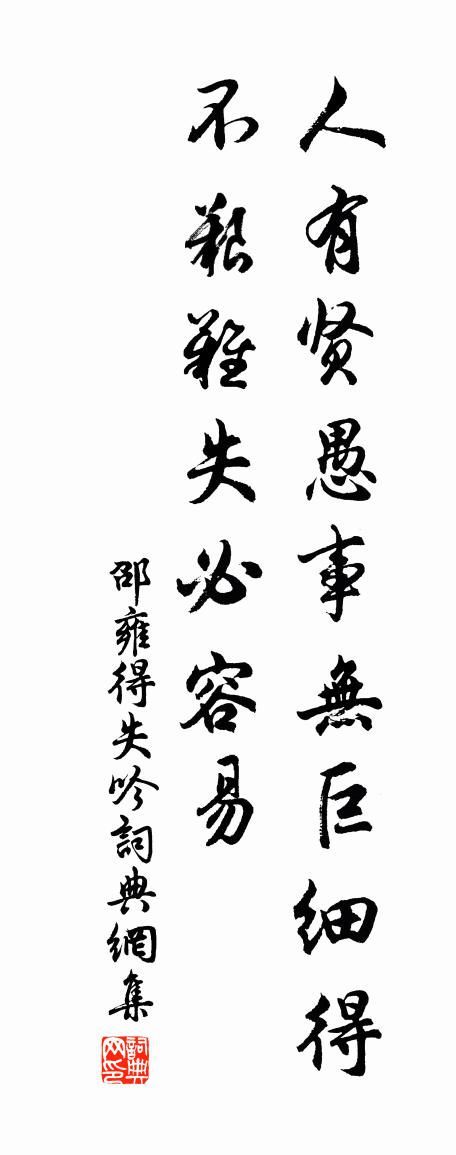 人有贤愚事無巨细得
不艱難失必容易
邵雍得失吟詞典網集
詞典
网印